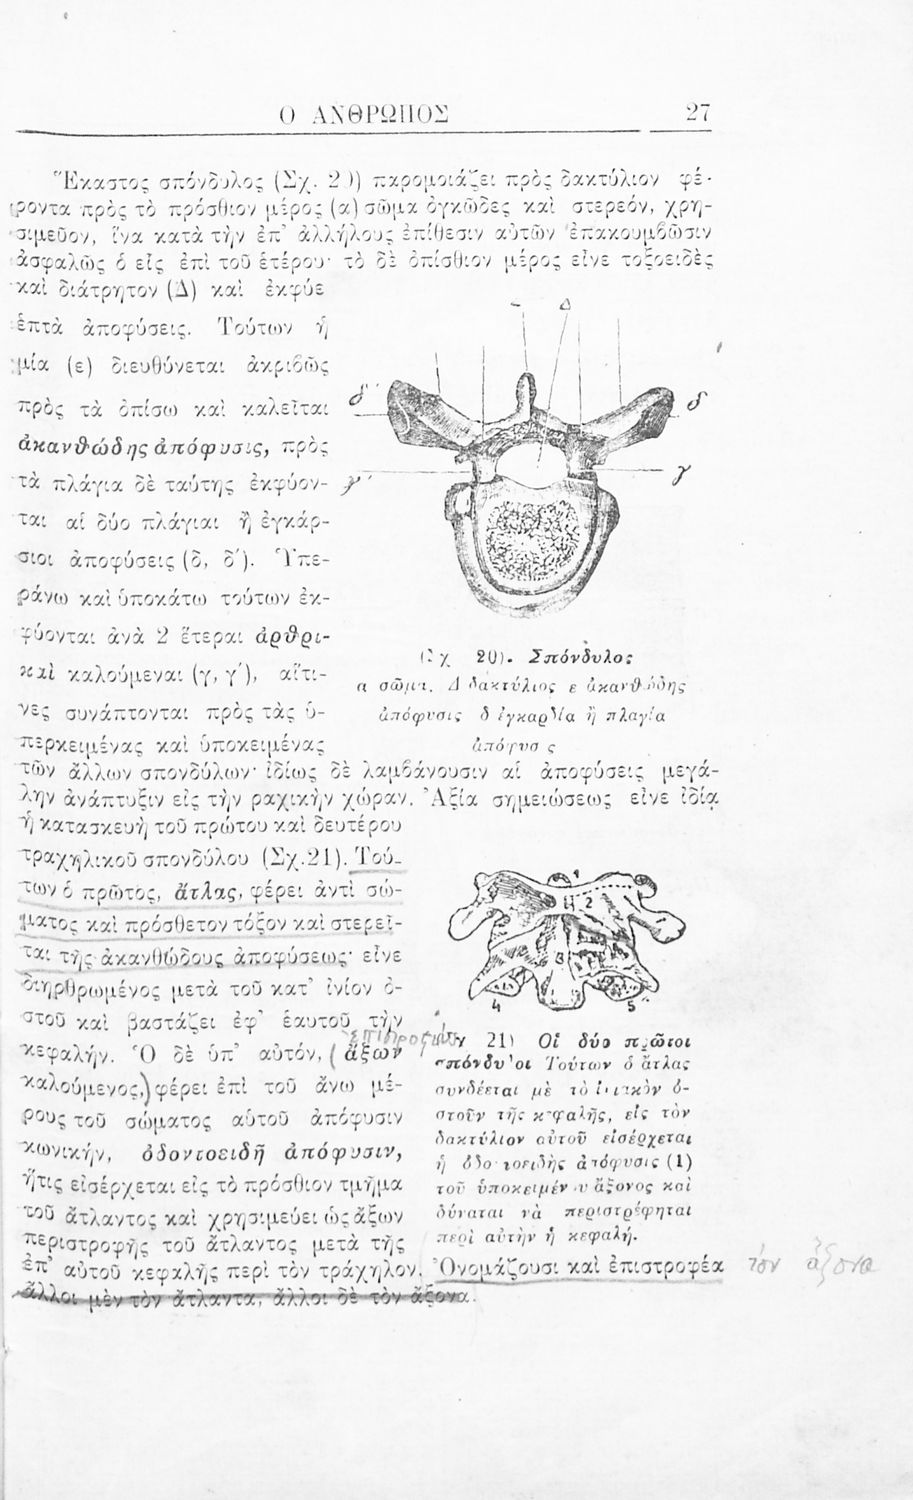 Ο ΑΝΘΡΩΠΟΣ 27
Ἕκαστος σπόνδυλος (Σχ. 20) παρομοιάζει πρὸς δακτύλιον φέ-
ροντα πρὸς τὸ πρόσθιον μέρος (α) σῶμα ὀγκῶδες καὶ στερεόν, χρη-
σιμεῦον, ἵνα κατὰ τὴν ἐπ’ ἀλλήλους ἐπίθεσιν αὐτῶν ἐπακουμβῶσιν
ἀσφαλῶς ὁ εἷς ἐπὶ τοῦ ἑτέρου· τὸ δὲ ὀπίσθιον μέρος εἶνε τοξοειδὲς
καὶ διάτρητον (Δ) καὶ ἐκφύε
ἑπτὰ ἀποφύσεις. Τούτων ἡ
μία (ε) διευθύνεται ἀκριβῶς
πρὸς τὰ ὀπίσω καὶ καλεῖται
ἀκανθώδης ἀπόφυσις, πρὸς
τὰ πλάγια δὲ ταύτης ἐκφύον-
ται αἱ δύο πλάγιαι ἢ ἐγκάρ-
σιοι ἀποφύσεις (δ, δ΄). Ὑπε-
ράνω καὶ ὑποκάτω τούτων ἐκ-
φύονται ἀνὰ 2 ἕτεραι ἀρθρι-
καὶ καλούμεναι (γ, γ΄), αἵτι-
νες συνάπτονται πρὸς τὰς ὑ-
περκειμένας καὶ ὑποκειμένας
Δ
δ΄ δ
γ΄ γ
(Σχ 20). Σπόνδυλος
α σῶμα. Δ δακτύλιος ε ἀκανθώδης
ἀπόφυσις δ ἐγκαρσία ἢ πλαγία
ἀπόφυσις
τῶν ἄλλων σπονδύλων· ἰδίως δὲ λαμβάνουσιν αἱ ἀποφύσεις μεγά-
λην ἀνάπτυξιν εἰς τὴν ραχικὴν χώραν. Ἀξία σημειώσεως εἶνε ἰδίᾳ
ἡ κατασκευὴ τοῦ πρώτου καὶ δευτέρου
τραχηλικοῦ σπονδύλου (Σχ.21). Τού-
των ὁ πρῶτος, ἄτλας, φέρει ἀντὶ σώ-
ματος καὶ πρόσθετον τόξον καὶ στερεῖ-
ται τῆς ἀκανθώδους ἀποφύσεως· εἶνε
διηρθρωμένος μετὰ τοῦ κατ’ ἰνίον ὀ-
στοῦ καὶ βαστάζει ἐφ’ ἑαυτοῦ τὴν
κεφαλήν. Ὁ δὲ ὑπ’ αὐτόν, (ἄξων
καλούμενος,) φέρει ἐπὶ τοῦ ἄνω μέ-
ρους τοῦ σώματος αὑτοῦ ἀπόφυσιν
κωνικήν, ὀδοντοειδῆ ἀπόφυσιν,
ἥτις εἰσέρχεται εἰς τὸ πρόσθιον τμῆμα
τοῦ ἄτλαντος καὶ χρησιμεύει ὡς ἄξων
περιστροφῆς τοῦ ἄτλαντος μετὰ τῆς
1
2
3
4 5
21) Οἱ δύο πρῶτοι
σπόνδυλοι Τούτων ὁ ἄτλας
συνδέεται μὲ τὸ ἰνιακὸν ὀ-
στοῦν τῆς κεφαλῆς, εἰς τὸν
δακτύλιον αὐτοῦ εἰσέρχεται
ἡ ὀδοντοειδὴς ἀπόφυσις (1)
τοῦ ὑποκειμένου ἄξονος καὶ
δύναται νὰ περιστρέφηται
περὶ αὐτὴν ἡ κεφαλή.
ἐπ’ αὐτοῦ κεφαλῆς περὶ τὸν τράχηλον. Ὀνομάζουσι καὶ ἐπιστροφέα τὸν ἄξονα
ἄλλοι μὲν τὸν ἄτλαντα, ἄλλοι δὲ τὸν ἄξονα.